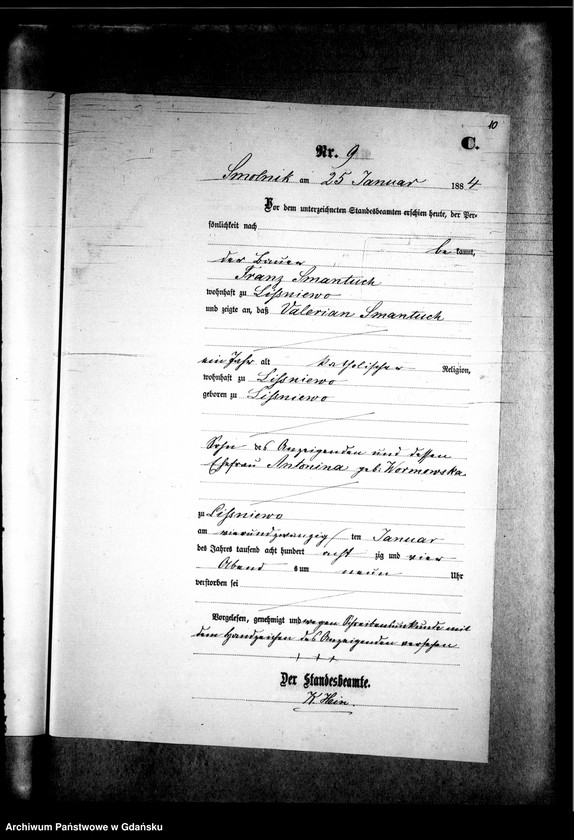 10
C.
Nr. 9
Smolnik am 25 Januar 1884
Vor dem unterzeichneten Standesbeamten erschien heute, der Per-
sönlichkeit nach
be kannt,
der Bauer
Franz Smantuch
wohnhaft zu Lißniewo
und zeigte an, daß Valerian Smantuch
ein Jahr alt katholischer Religion,
wohnhaft zu Lißniewo
geboren zu Lißniewo
Sohn des Anzeigenden und dessen
Ehefrau Antonina geb: Wormewska
zu Lißniewo
am vierundzwanzig ten Januar
des Jahres tausend acht hundert acht zig und vier
Abend s um neun Uhr
verstorben sei
Vorgelesen, genehmigt und wegen Schreibensunkunde mit
dem Handzeichen des Anzeigenden versehen
+ + +
Der Standesbeamte.
K. Hein.
Archiwum Państwowe w Gdańsku